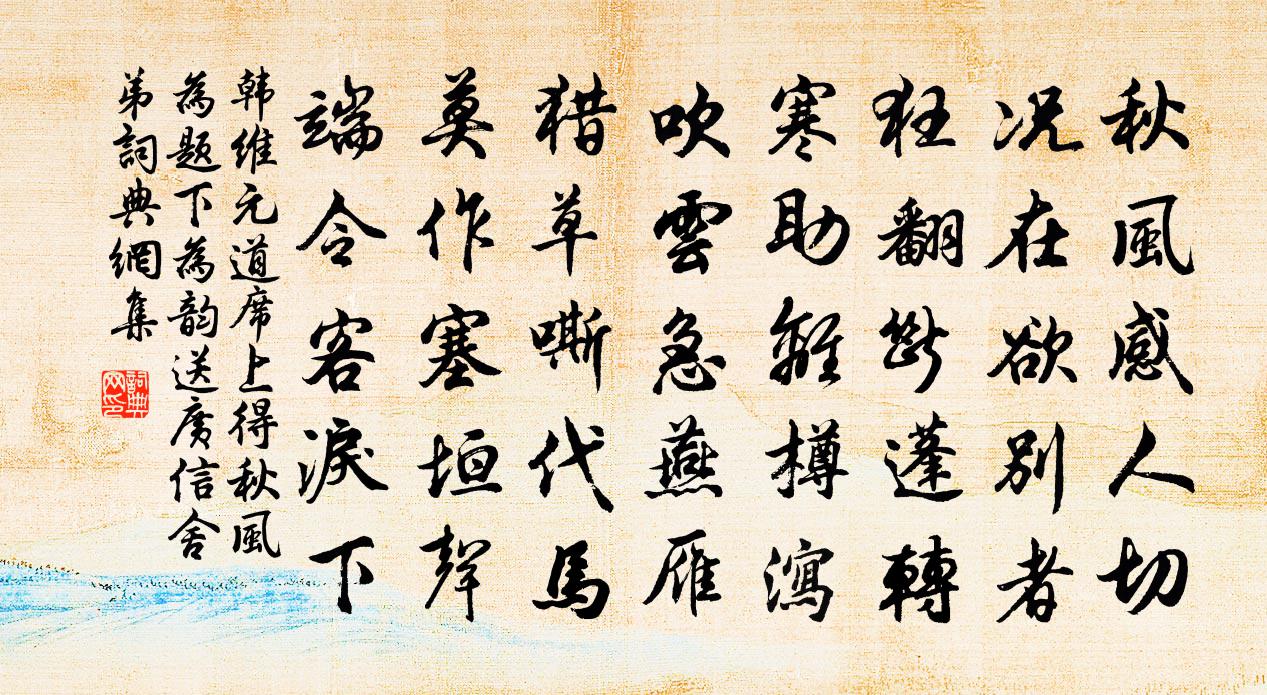 秋風感人切
况在欲別者
狂翻斷蓬轉
寒助離樽瀉
吹雲急燕雁
猎草嘶代馬
莫作塞垣聲
端令客淚下
韩維元道席上得秋風
為題下為韵送廣信舍
弟詞典網集
詞典
网印